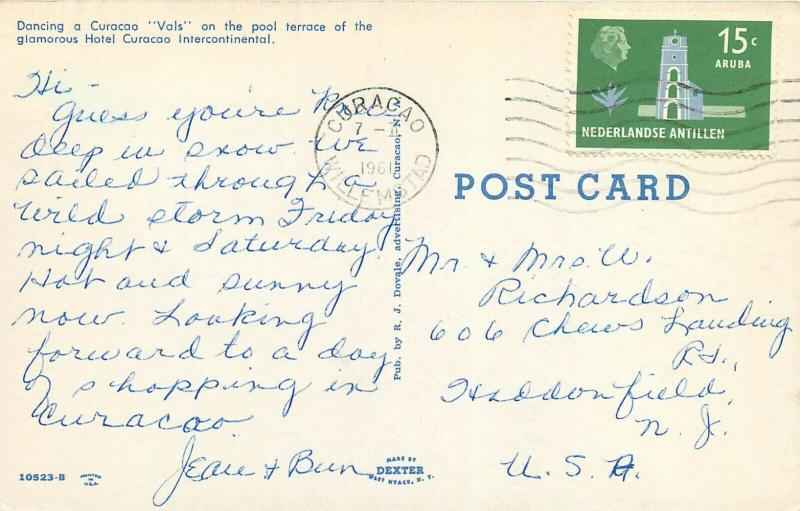 Dancing a Curacao "Vals" on the pool terrace of the
glamorous Hotel Curacao Intercontinental.
Hi -
Guess you're knee
deep in snow. We
sailed through a
wild storm Friday
night & Saturday.
Hot and sunny
now. Looking
forward to a day
of shopping in
Curacao
Jean & Bun
10523-B
PRINTED
IN
U.S.A.
CURACAO
1961
WILLEMSTAD
Pub. by R. J. Dovale, advertising, Curacao, N.A.
MADE BY
DEXTER
WEST NYACK, N. Y.
15c
ARUBA
NEDERLANDSE ANTILLEN
POST CARD
Mr. & Mrs. W.
Richardson
606 Chews Landing
Rd.,
Haddonfield,
N. J.
U. S. A.